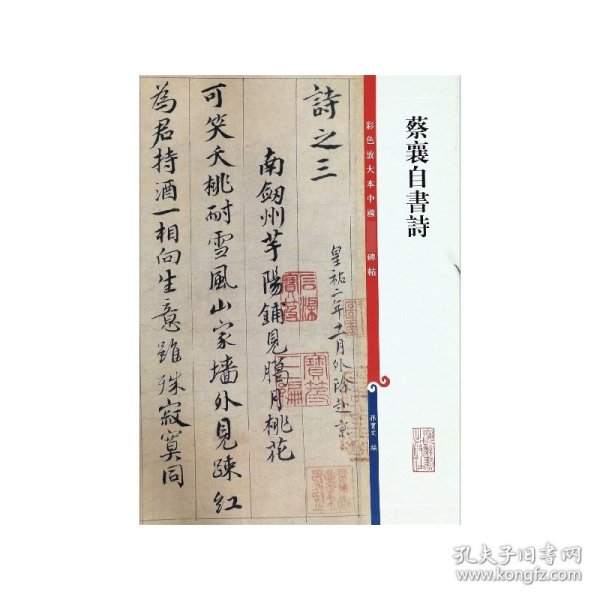 蔡襄自書詩
彩色放大本中國碑帖
孫寶文 編
詩之三
皇祐二年十一月外除赴京
南劔州芋陽鋪見臈月桃花
可笑夭桃耐雪風山家墻外見踈紅
為君持酒一相向生意雖殊寂寞同
孔夫子旧书网
www.kongfz.com